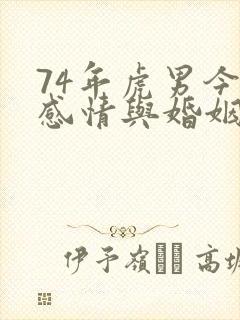 74年虎男今
感情與婚姻
伊予嶺 高塚